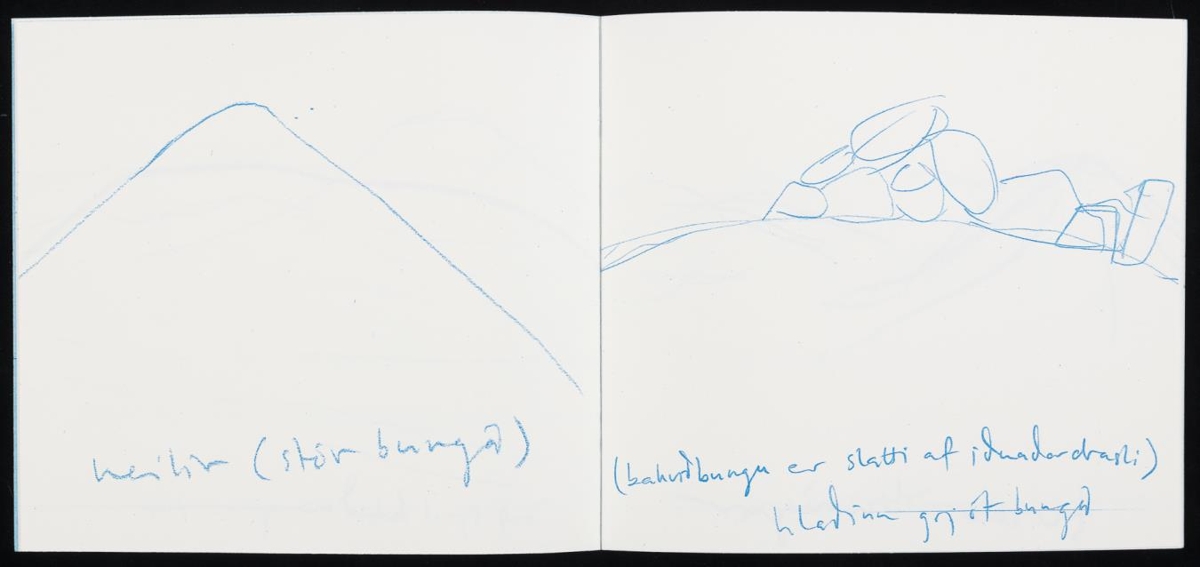 keilir (stór bunga)
(bakvið bungu er slatti af iðnaðardrasli)
hlaðinn grjót bunga